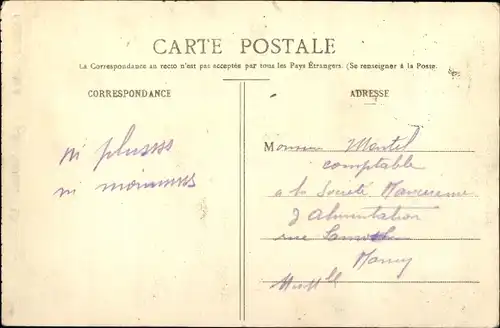 CARTE POSTALE
La Correspondance au recto n'est pas acceptée par tous les Pays Étrangers. (Se renseigner à la Poste.
CORRESPONDANCE
ADRESSE
ni plusss
ni moinnnss
Monsieur Mentel
comptable
a la Societé Nanceienne
d'alimentation
rue
Nancy